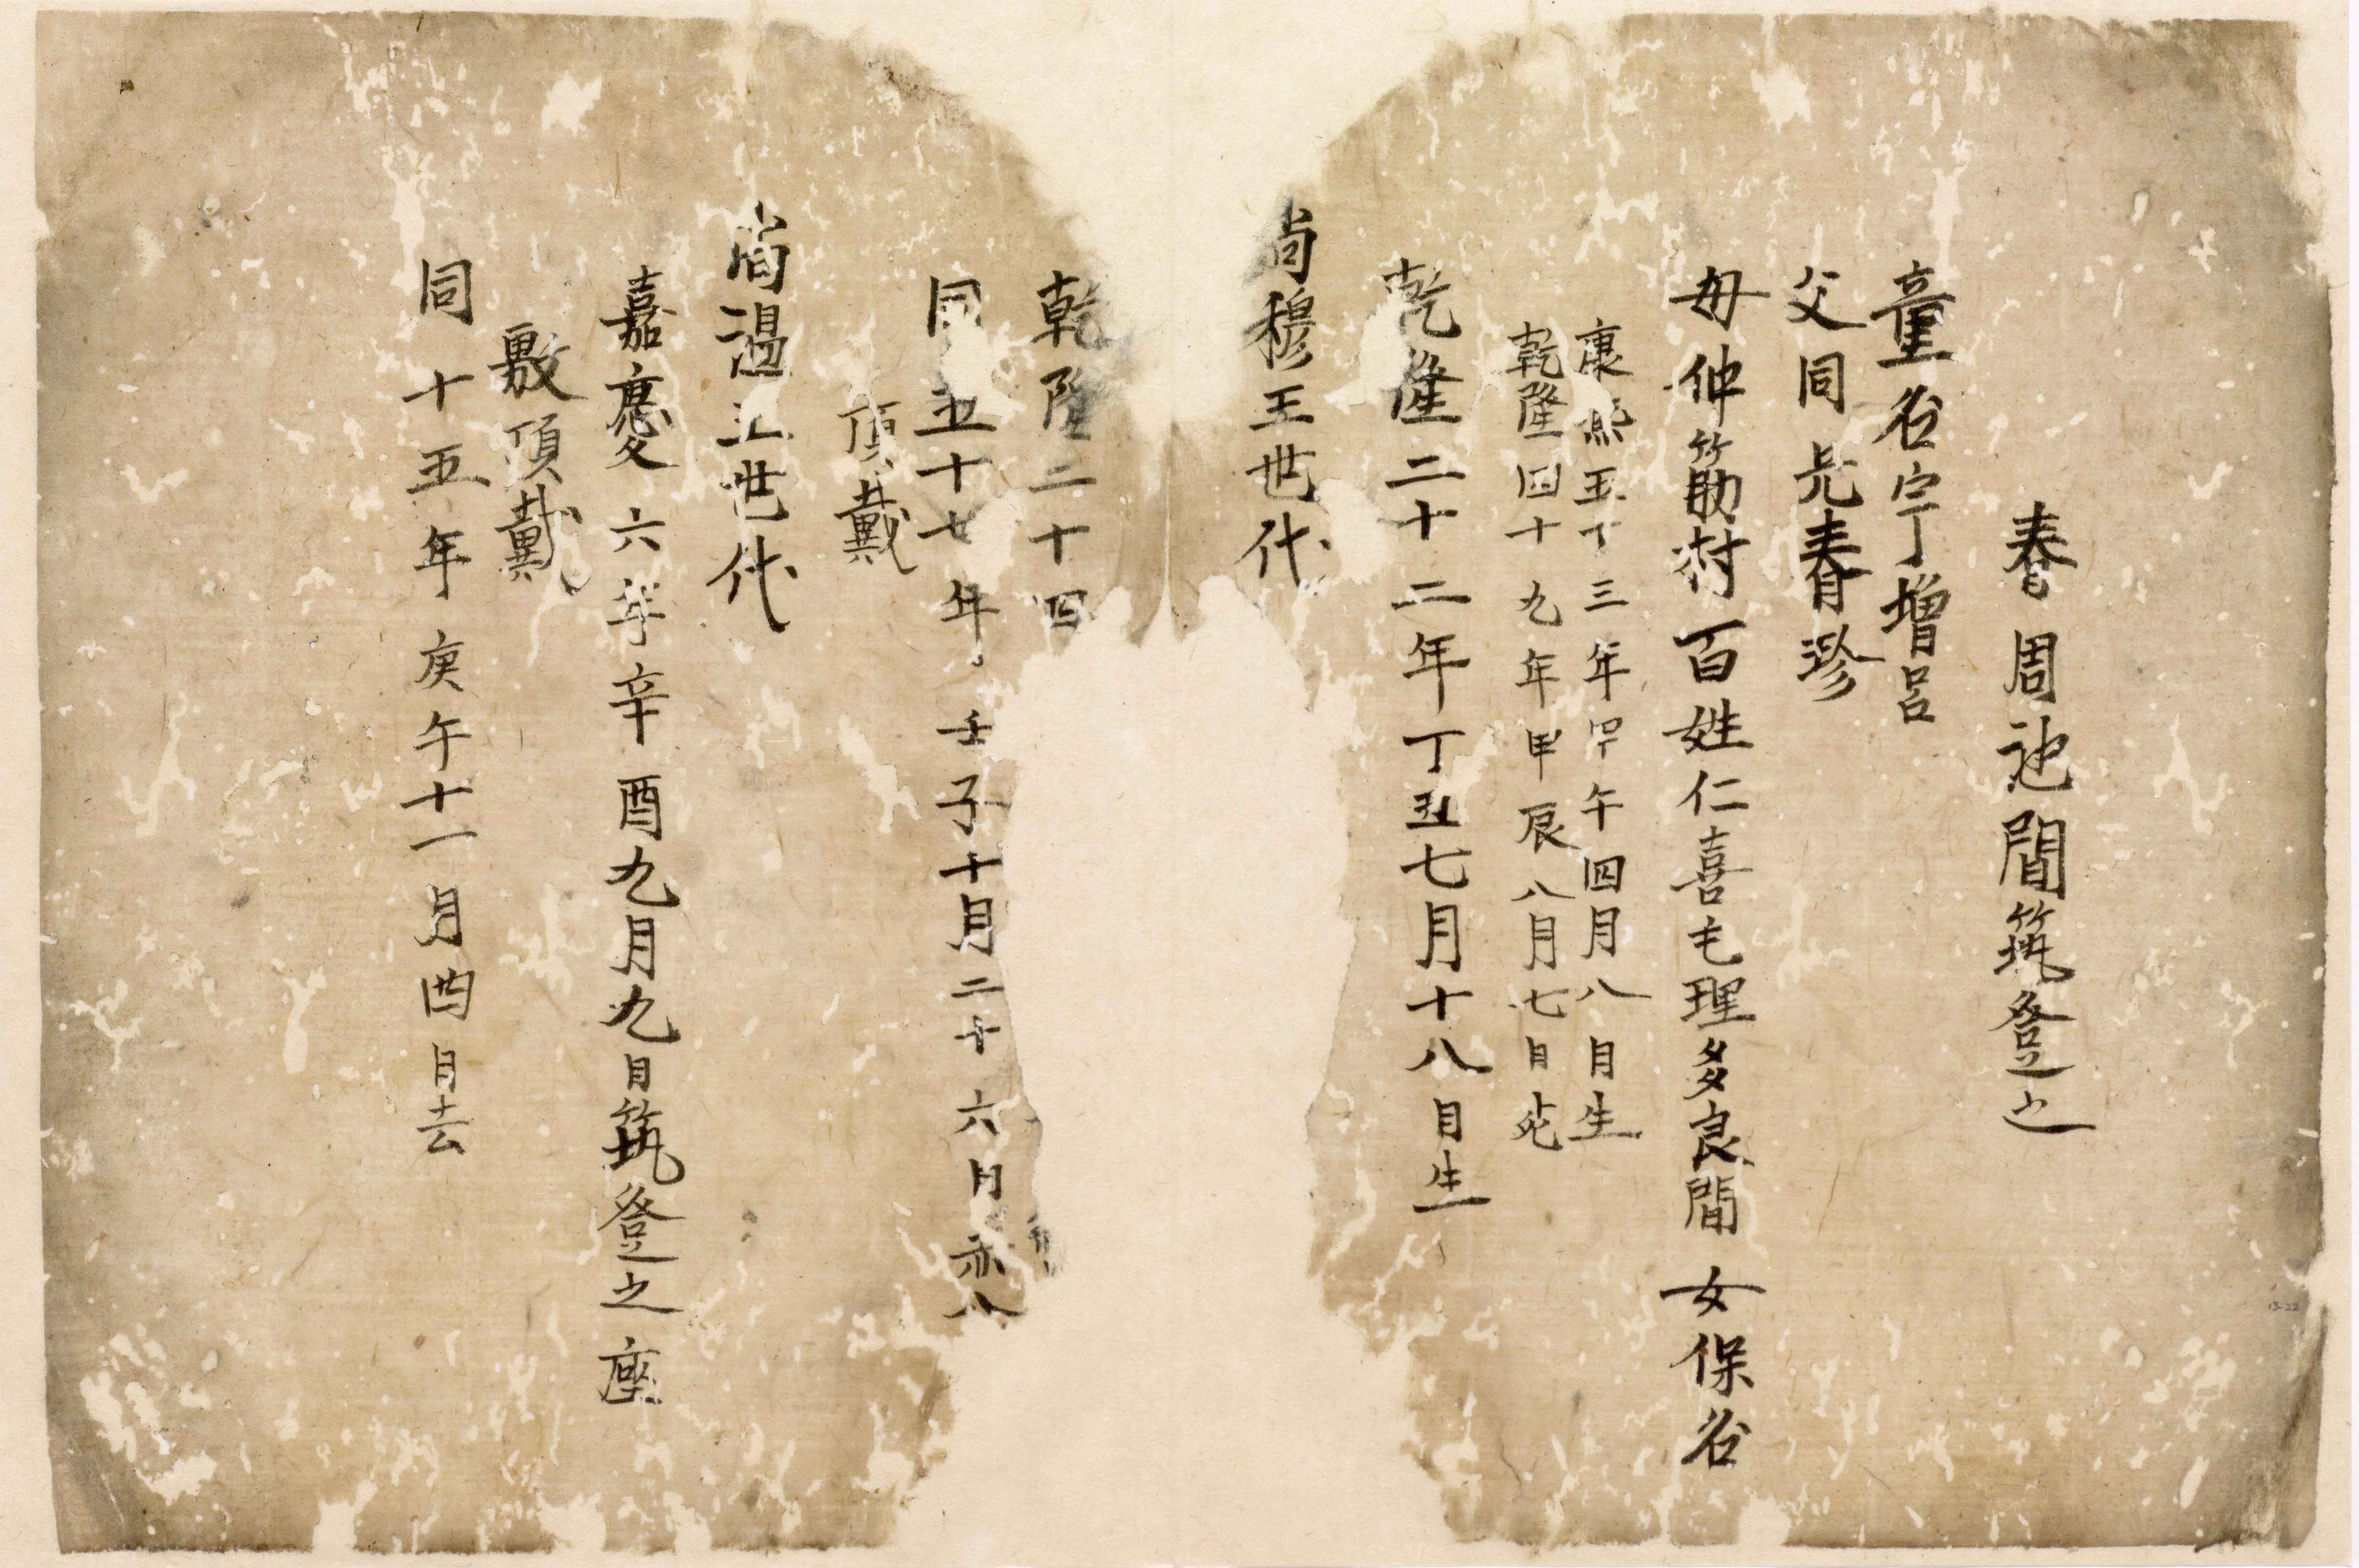 春周池間筑登之
童名宇增呂
父同氏春瀏
毋仲筋村百姓仁喜屯理多良間女保谷
康熙五十三年甲午四月八日生
乾隆四十九年甲辰八月七日死
乾隆二十二年丁丑七月十八日生
尚穆王世代
乾隆二十四
同五十七年壬子十月二十六日赤八
頂戴
尚温王世代
嘉慶六年辛酉九月九日筑登之座
敷頂戴
同十五年庚午十一月四日去